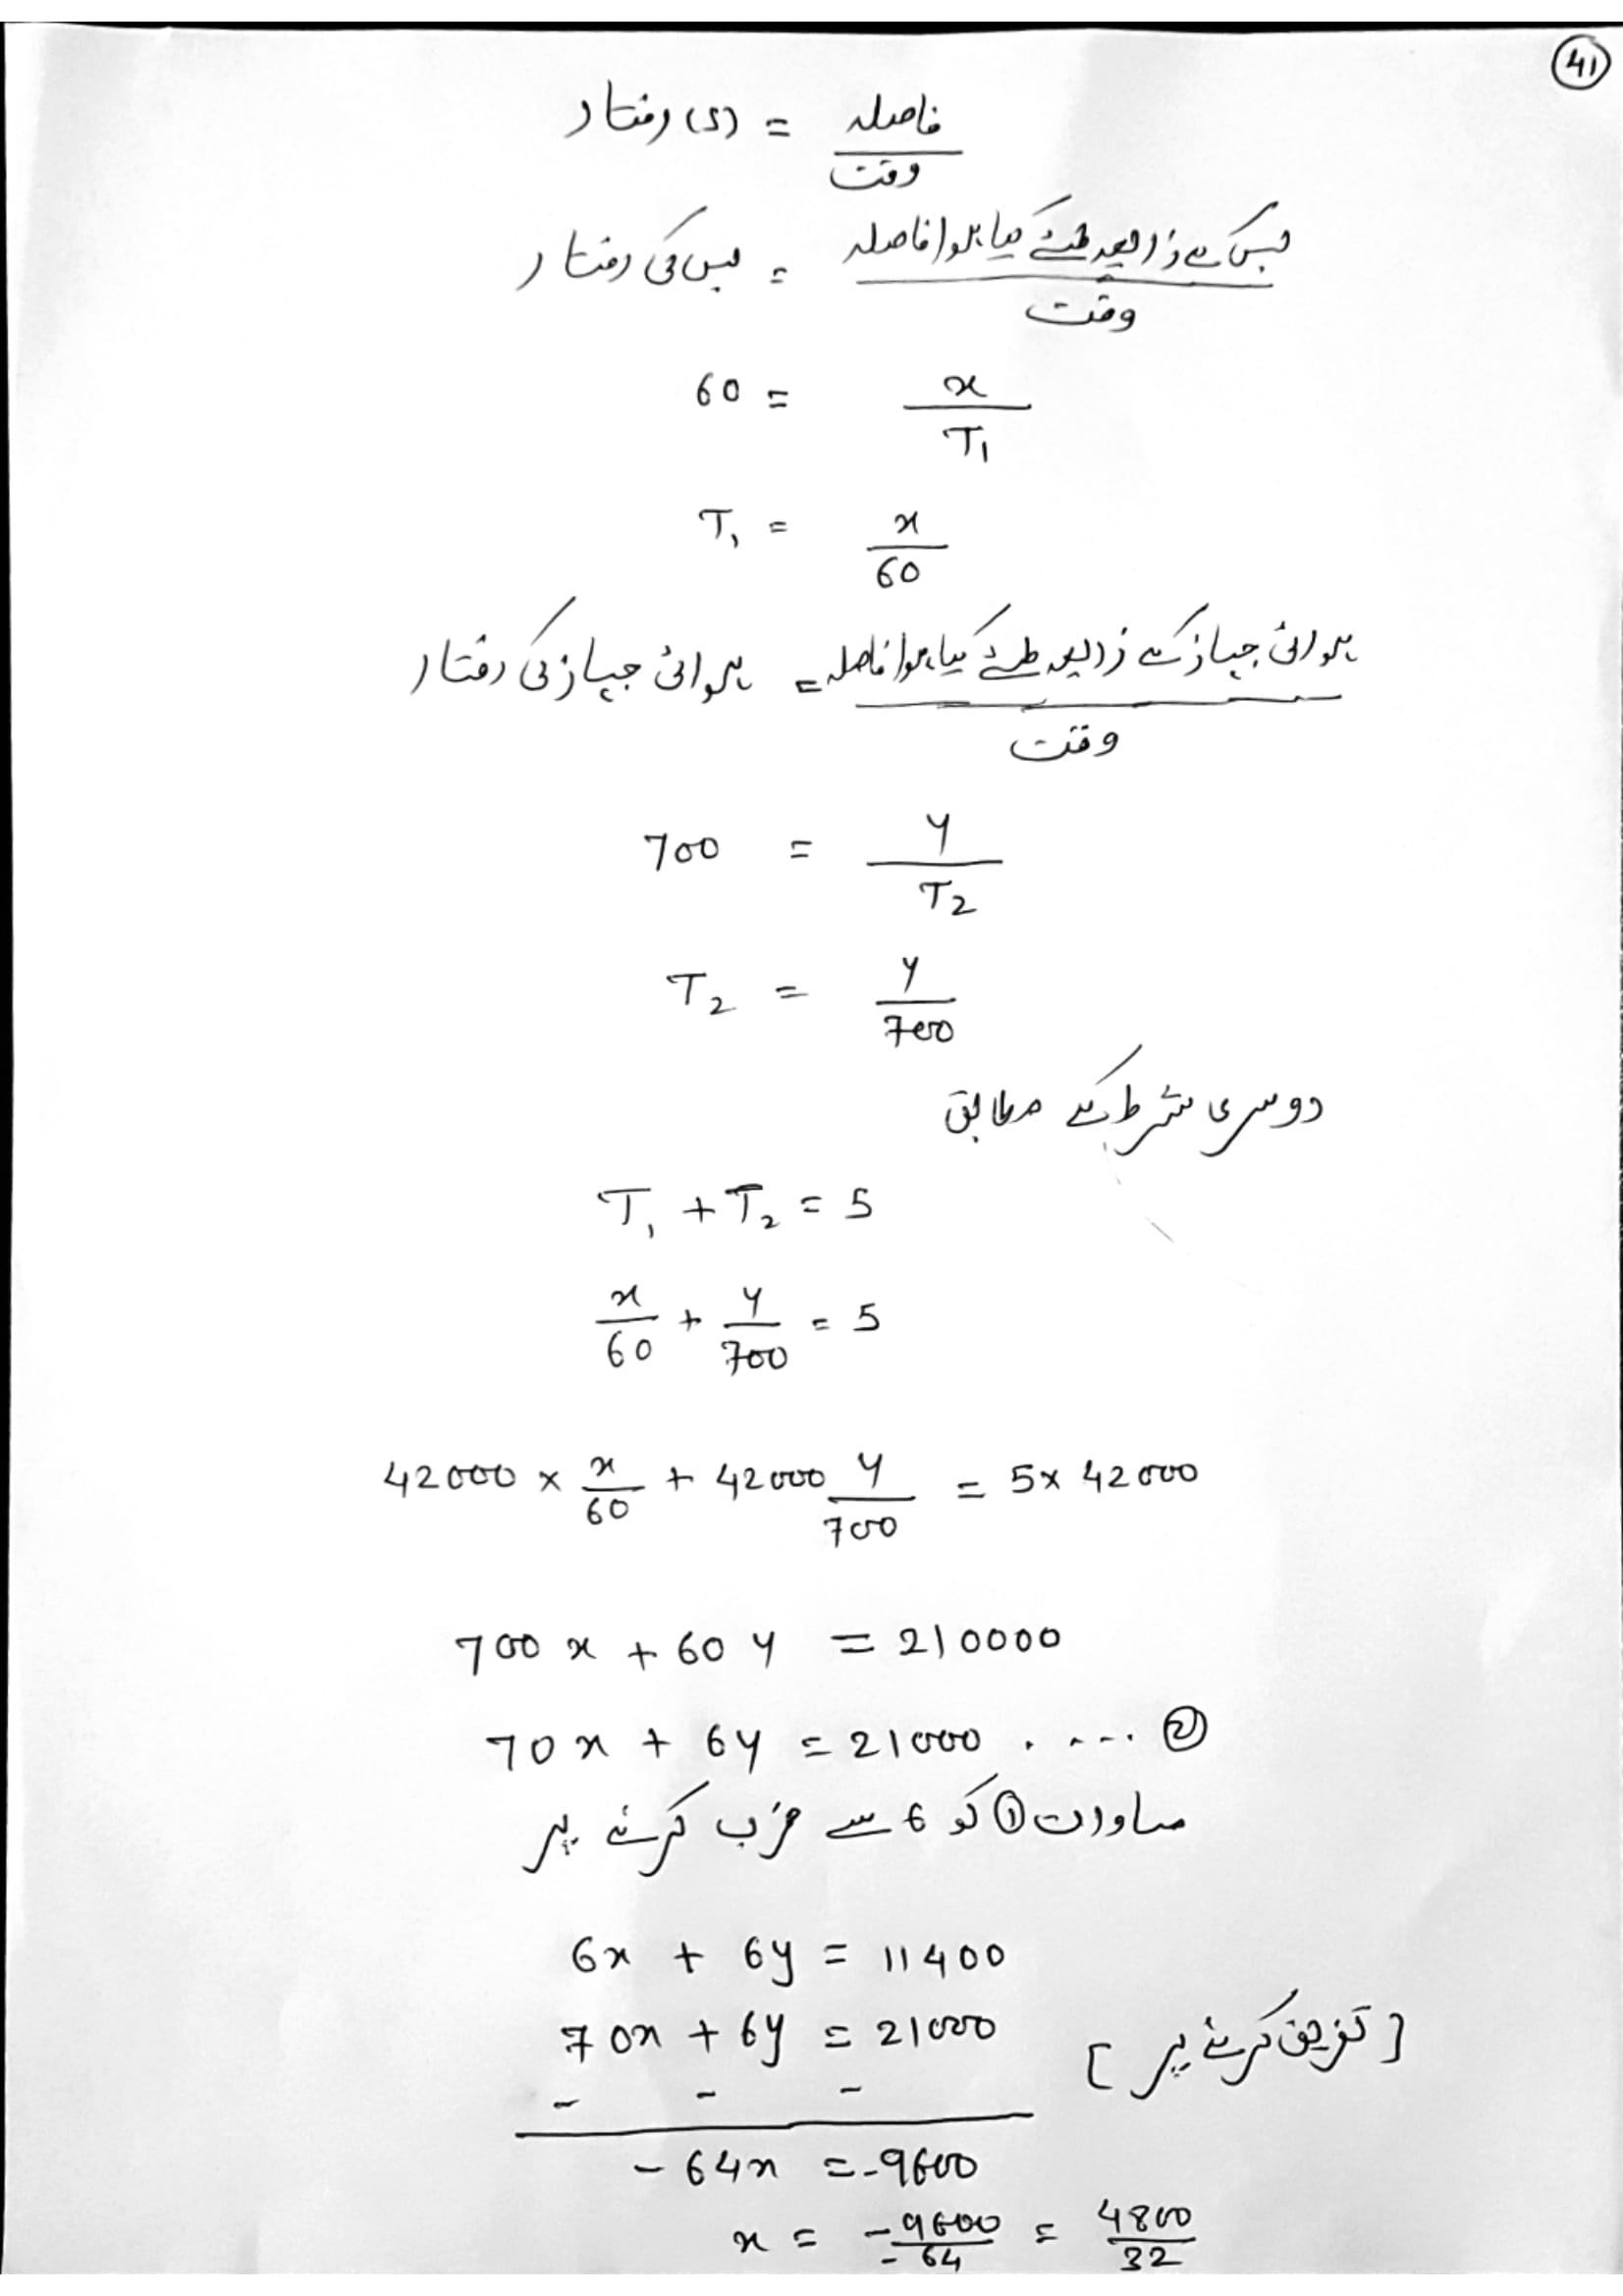 41
رفتار (s) = فاصلہ / وقت
بس کی رفتار = بس کے ذریعہ طئے کیا ہوا فاصلہ / وقت
60 = x / T₁
T₁ = x / 60
ہوائی جہاز کی رفتار = ہوائی جہاز کے ذریعہ طئے کیا ہوا فاصلہ / وقت
700 = y / T₂
T₂ = y / 700
دوسری شرط کے مطابق
T₁ + T₂ = 5
x/60 + y/700 = 5
42000 × x/60 + 42000 y/700 = 5 × 42000
700 x + 60 y = 210000
70x + 6y = 21000 ..... ②
مساوات ① کو 6 سے ضرب کرنے پر
6x + 6y = 11400
70x + 6y = 21000 [تفریق کرنے پر]
- - -
- 64x = -9600
x = -9600/-64 = 4800/32